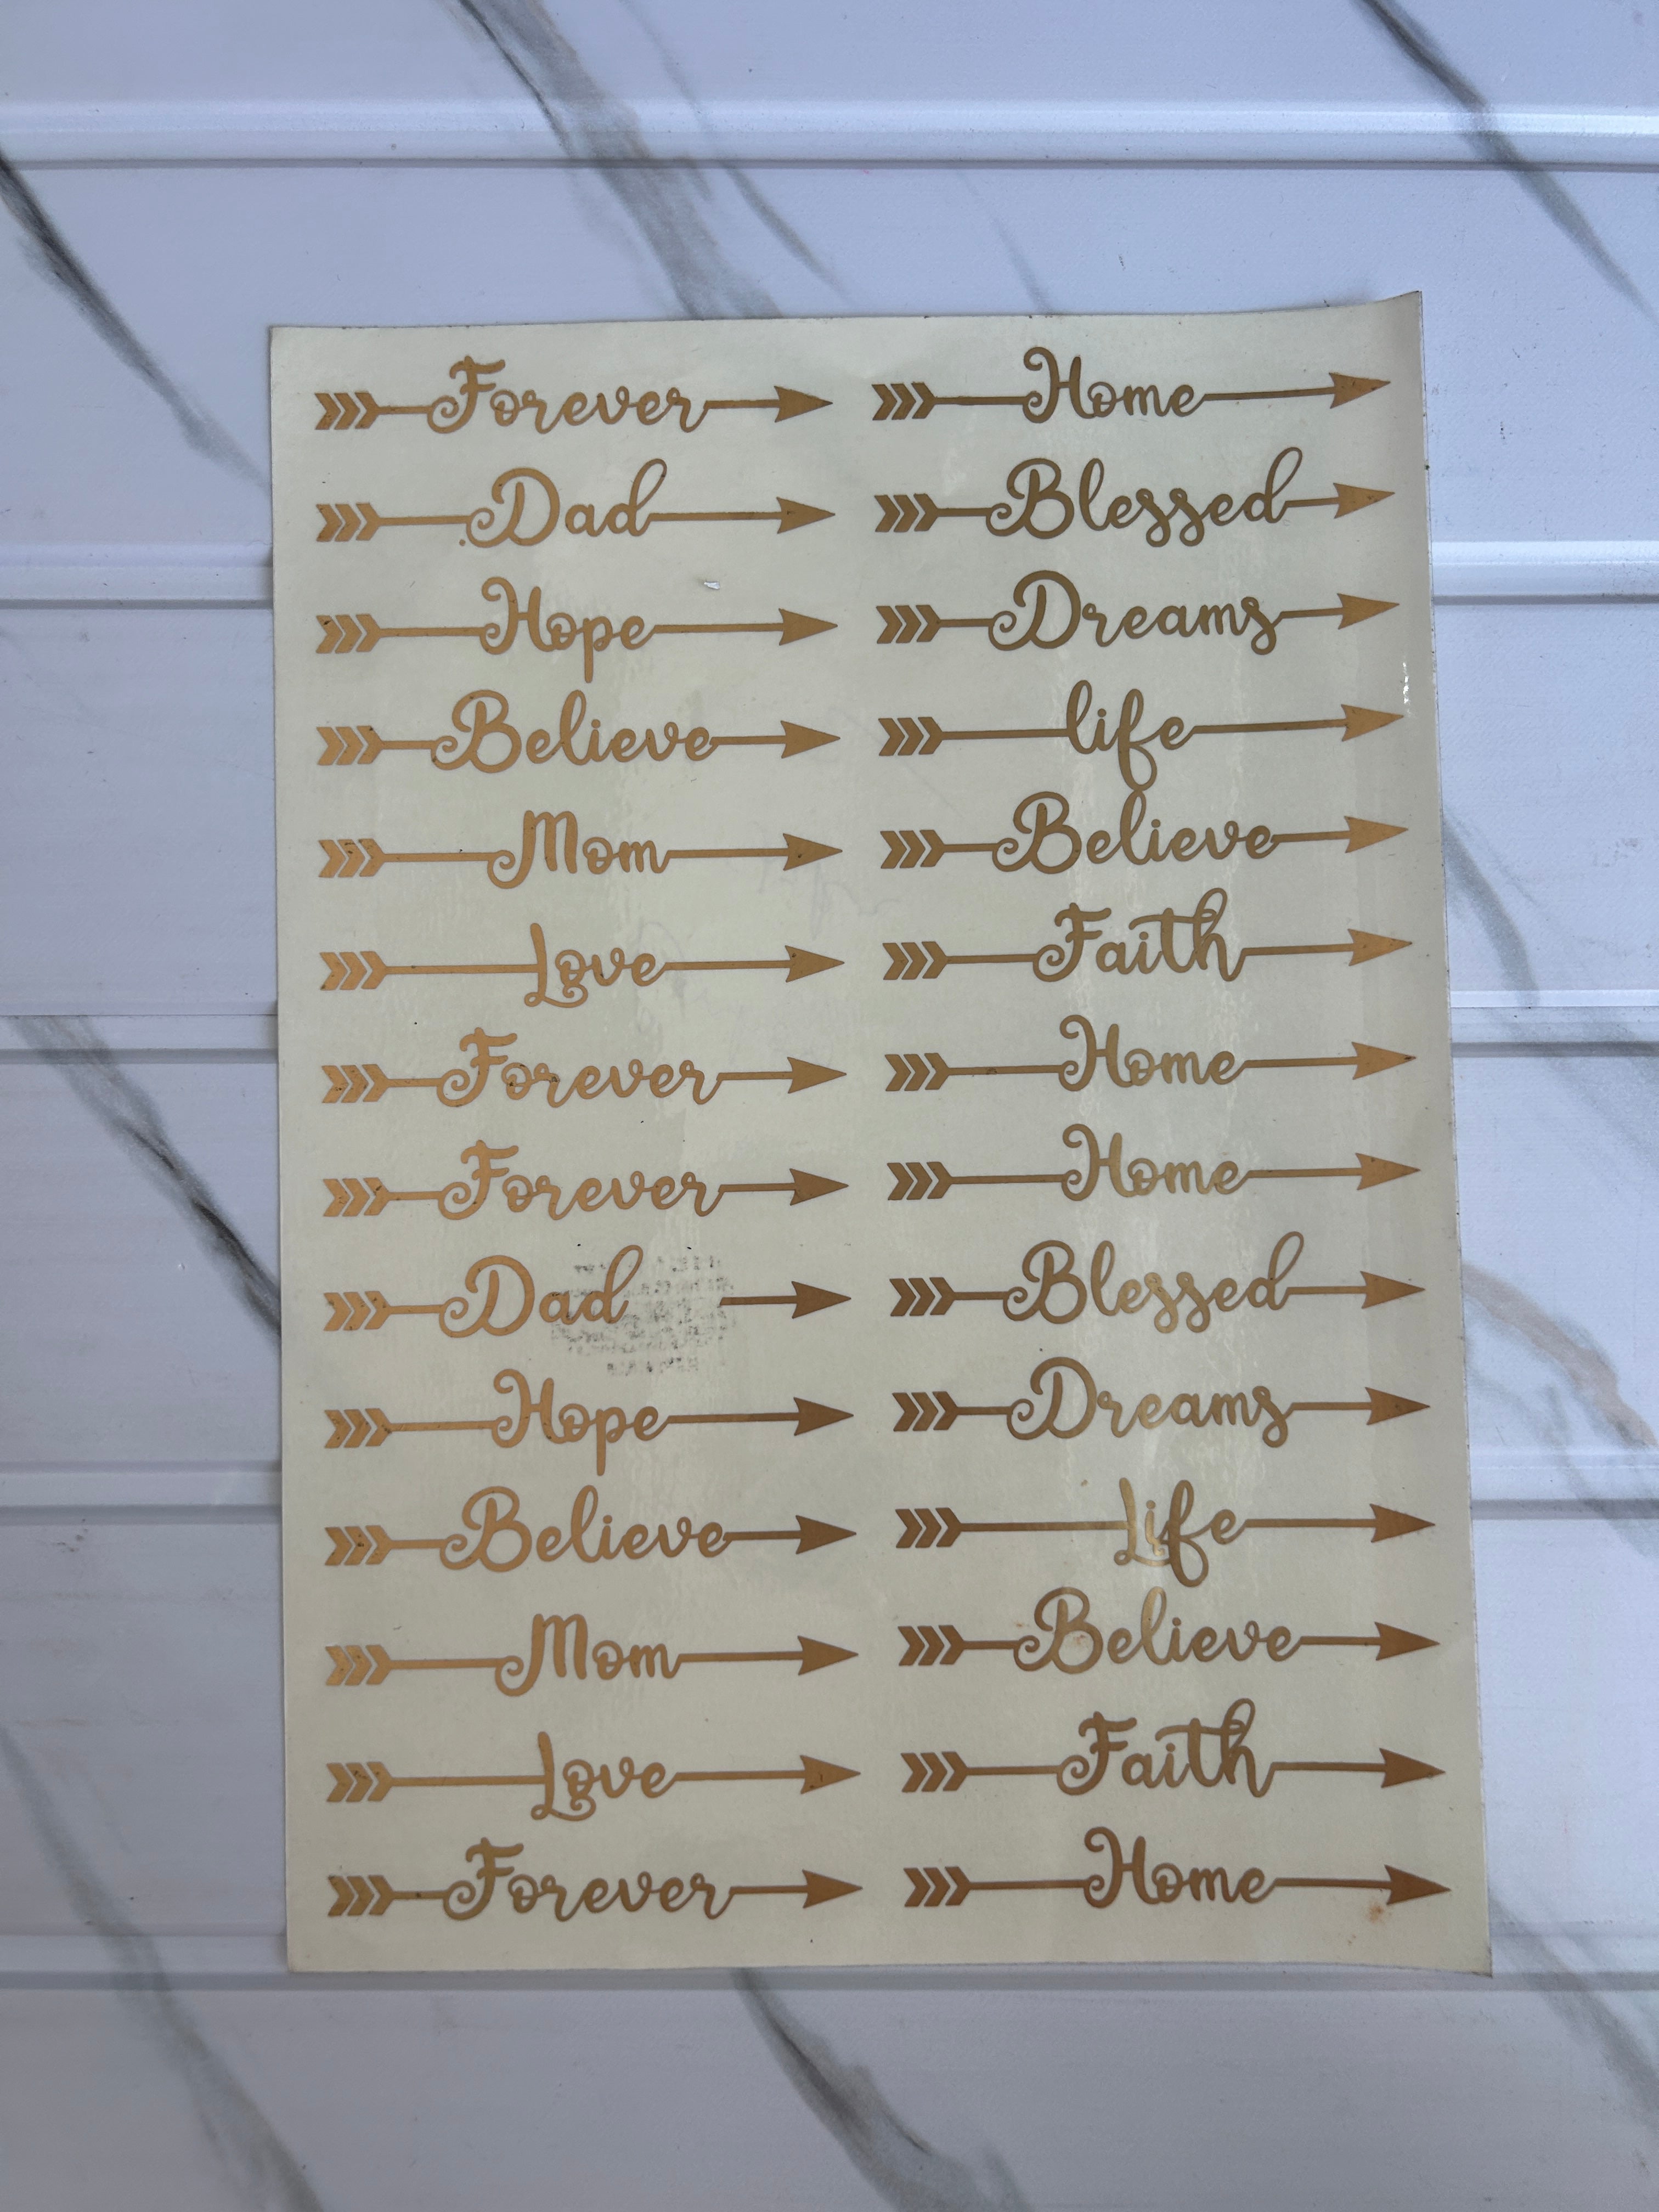 Forever Home
Dad Blessed
Hope Dreams
Believe life
Mom Believe
Love Faith
Forever Home
Forever Home
Dad Blessed
Hope Dreams
Believe Life
Mom Believe
Love Faith
Forever Home